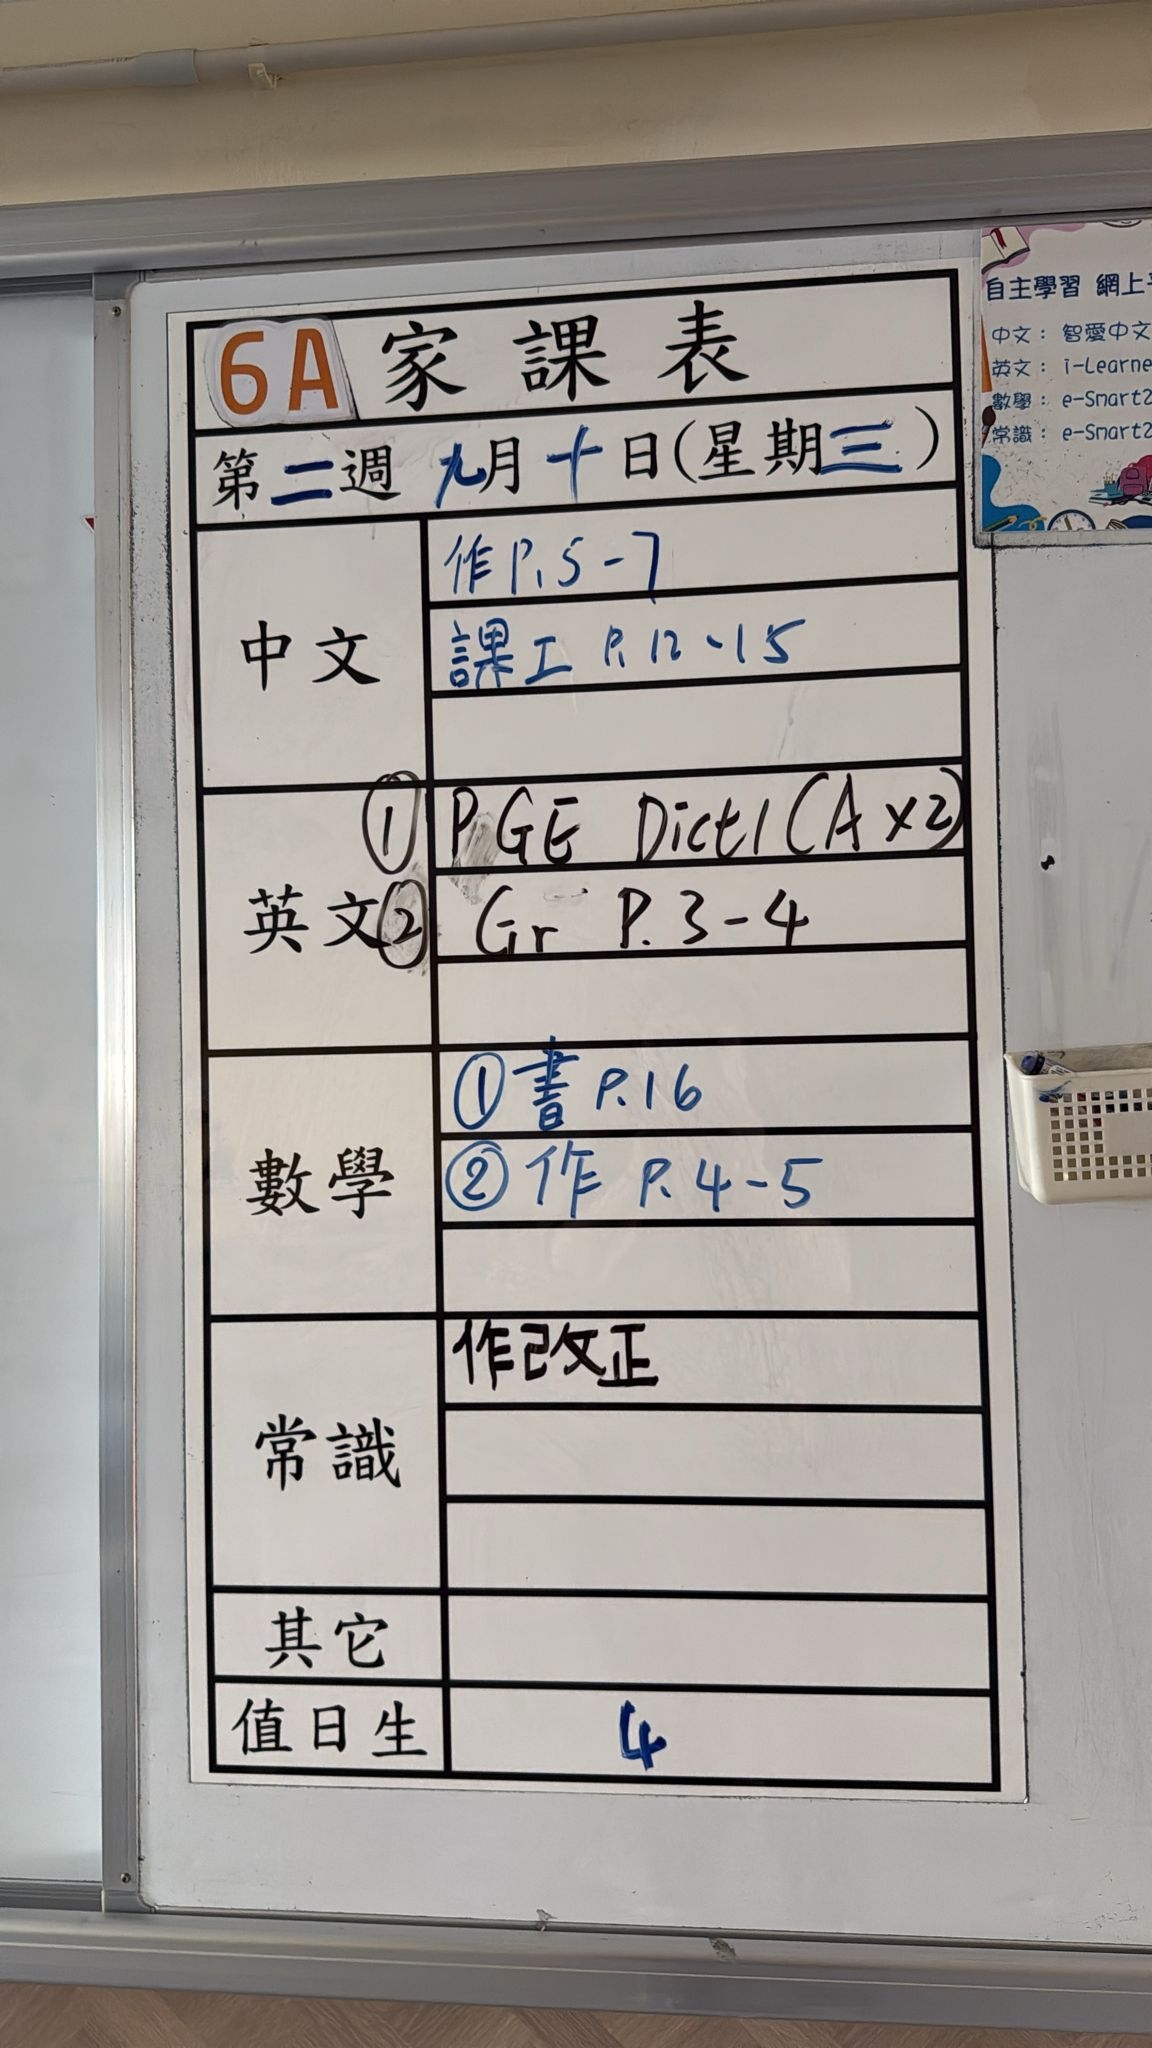 6A 家課表
第二週 九月十日(星期三)
中文
作 P.5-7
課工 P.12-15
英文
① P.GE Dict1 (A x2)
② Gr P.3-4
數學
① 書 P.16
② 作 P.4-5
常識
作改正
其它
值日生
4
自主學習 網上
中文： 智愛中文
英文： i-Learne
數學： e-Smart2
常識： e-Smart2